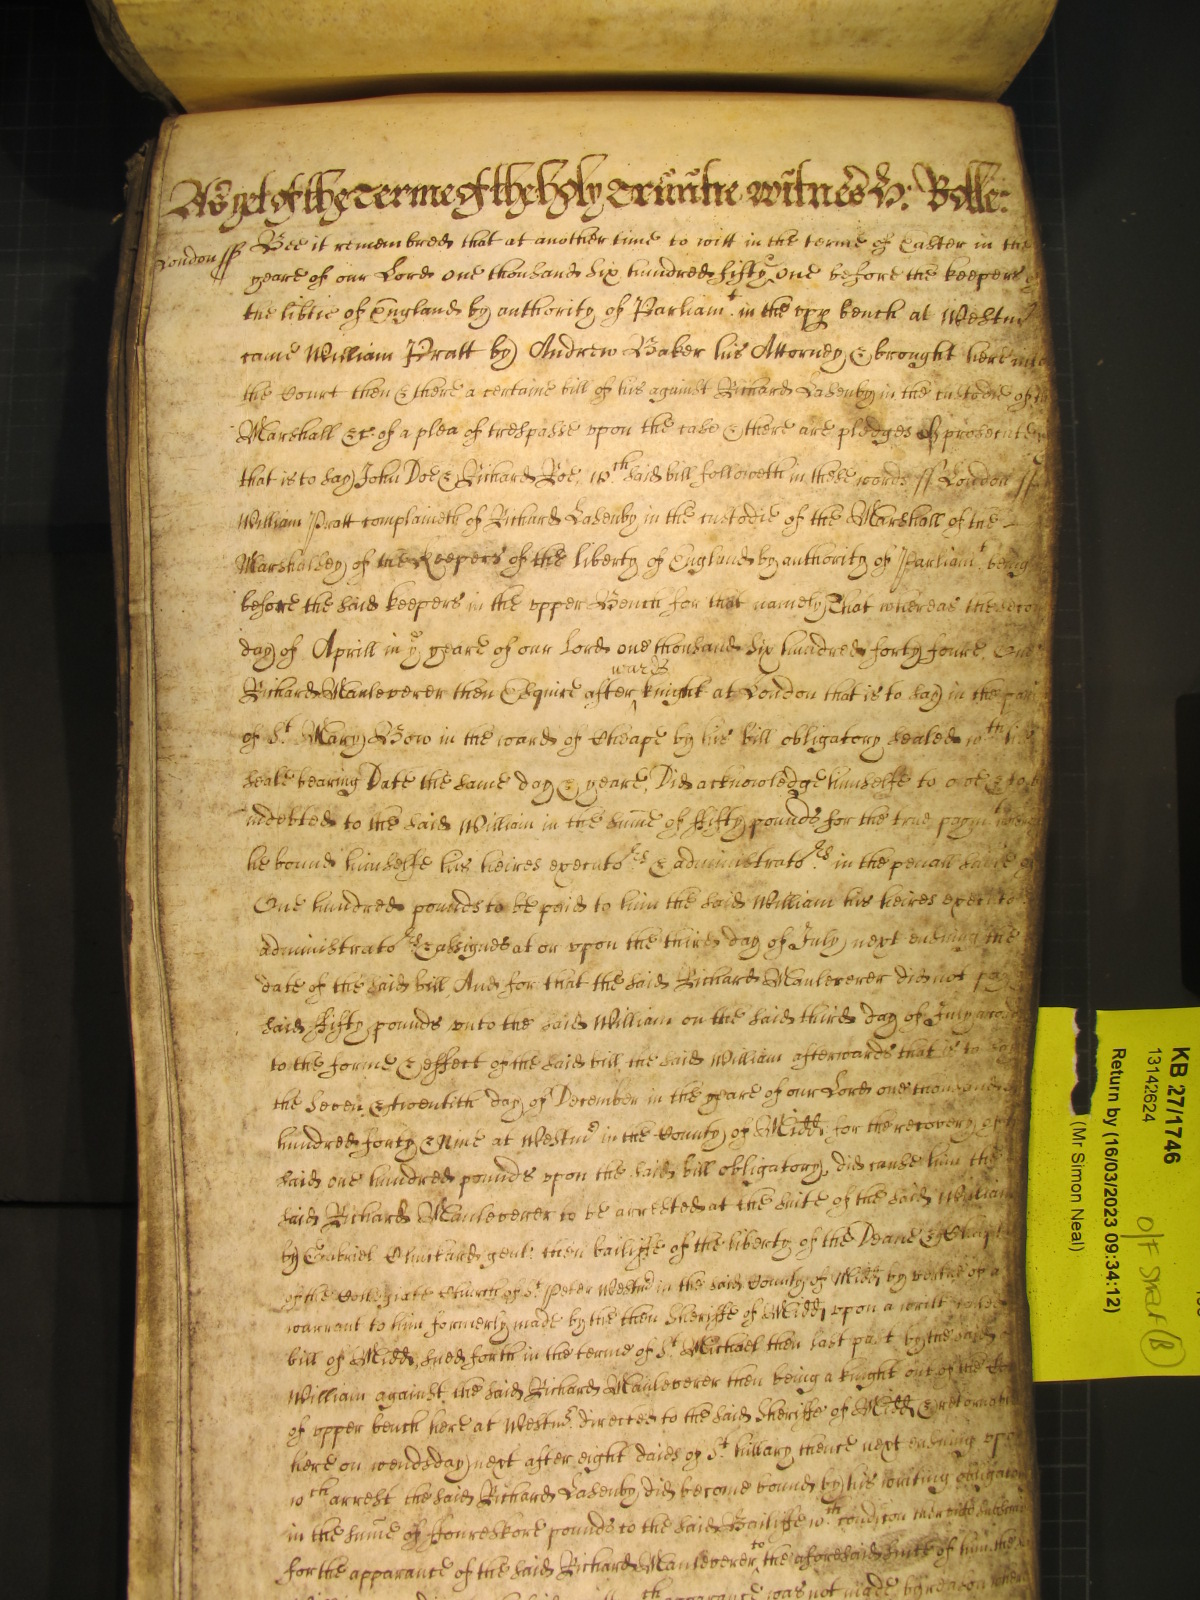 As yet of the Terme of the holy Trinitie witnes H: Rolle:
London ss Bee it remembred that at another time to witt in the terme of Easter in the
yeare of our Lord one thousand six hundred fifty & one before the keepers of
the libtie of England by authority of Parliamt. in the vpp bench at Westmr
came William Pratt by Andrew Baker his Attorney & brought here into
the Court then & there a certaine bill of his against Richard Lasenby in the custodie of the
Marshall &c. of a plea of trespasse vpon the case & there are pledges of prosecuteing
that is to say John Doe & Richard Roe, wch said bill followeth in these words ss London ss
William Pratt complaineth of Richard Lasenby in the custodie of the Marshall of the
Marshalsey of the Keepers of the liberty of England by authority of Parliamt. being
before the said keepers in the vpper Bench for that namely, That whereas the second
day of Aprill in ye yeare of our Lord one thousand six hundred forty foure, One
Richard Mauleverer then Esquire after wards knight at London that is to say in the parish
of St. Mary Bow in the ward of Cheape by his bill obligatory sealed wth his
seale bearing Date the same day & yeare, Did acknowledge himselfe to owe & to be
indebted to the said William in the summe of ffifty pounds for the true paymt
he bound himselfe his heires executors & administrators in the penall summe of
One hundred pounds to be paid to him the said William his heires executors
administrators & assignes at or vpon the third day of July next ensuing the
date of the said bill, And for that the said Richard Mauleverer did not pay
said ffifty pounds vnto the said William on the said third day of July according
to the forme & effect of the said bill, the said William afterwards that is to say
the seven & twentith day of December in the yeare of our Lord one thousand
hundred forty & Nine at Westmr in the County of Midd, for the recovery of the
said one hundred pounds vpon the said bill obligatory, did cause him the
said Richard Mauleverer to be arrested at the suite of the said William
by Gabriel gent: then bailiffe of the liberty of the Deane & Chapter
of the Collegiate Church of St. Peter Westmr in the said County of Midd by vertue of a
warrant to him formerly made by the then Sheriffe of Midd, vpon a writt called
bill of Midd, sued forth in the terme of St. Michael then last past by the said
William against the said Richard Mauleverer then being a knight out of the Court
of vpper bench here at Westmr. directed to the said Sheriffe of Midd & retornable
here on wendsday next after eight daies of St. hillary thence next ensuing vpon
wch arrest the said Richard Lasenby did become bound by his writing obligatory
in the summe of ffoureskore pounds to the said Bailiffe wth. condicon
for the apparance of the said Richard Mauleverer to the aforesaid suite of him the
apparance was not made, by reason
KB 27/1746
13142624
Return by (16/03/2023 09:34:12)
(Mr Simon Neal)